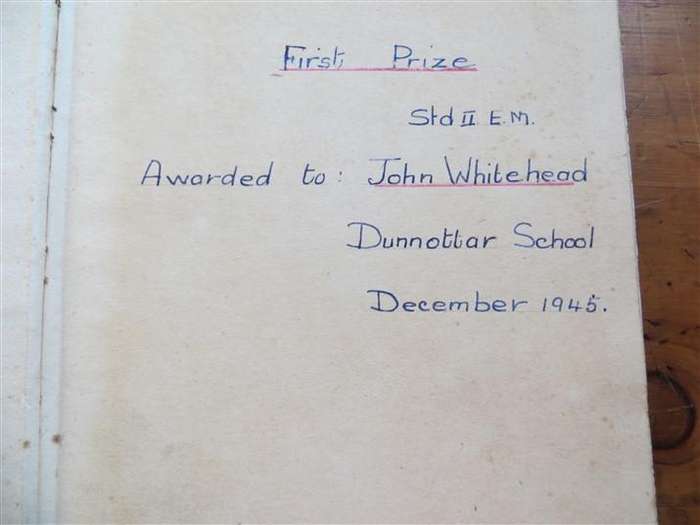 First, Prize
Std II E.M.
Awarded to: John Whitehead
Dunnottar School
December 1945.